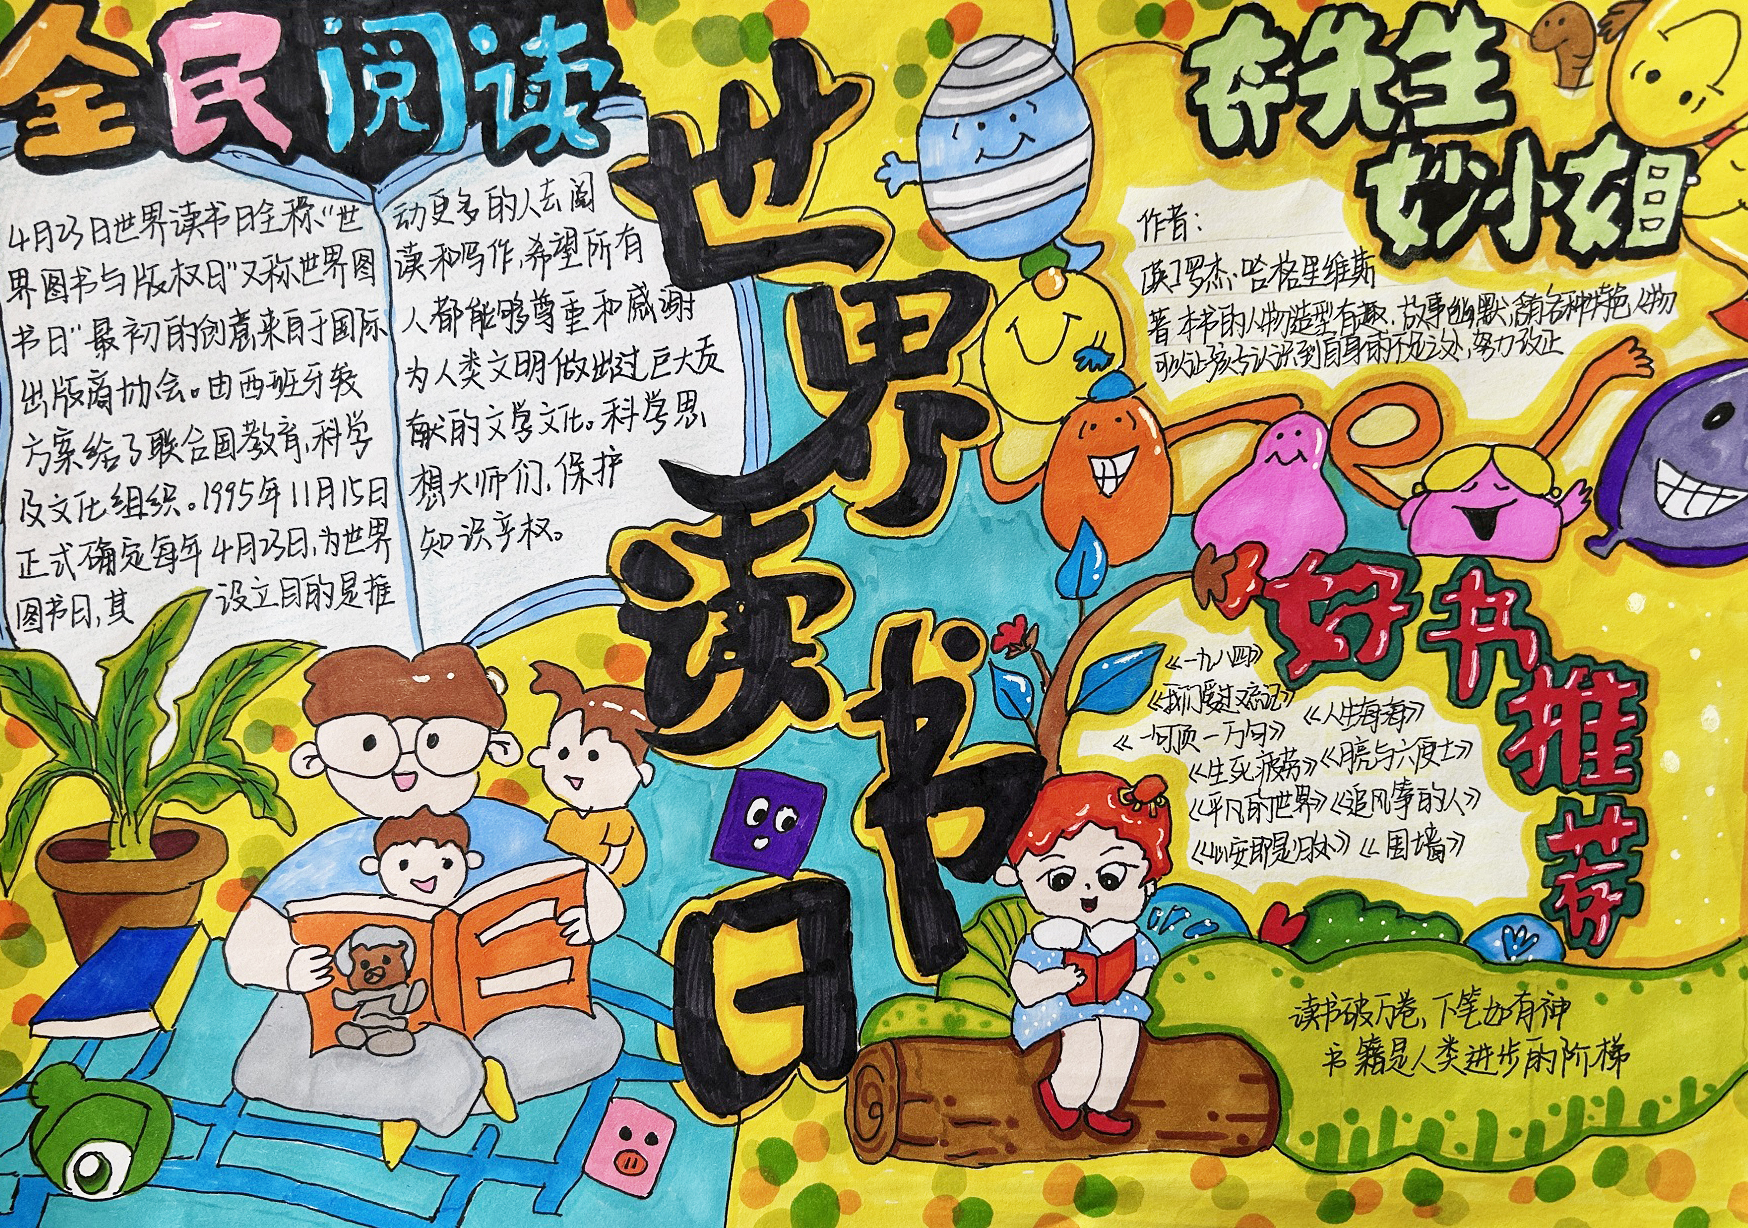 全民阅读
4月23日世界读书日全称“世
界图书与版权日”又称世界图
书日”最初的创意来自于国际
出版商协会。由西班牙转
方案给了联合国教育,科学
及文化组织。1995年11月15日
正式确定每年4月23日,为世界
图书日,其 设立目的是推
动更多的人去阅
读和写作,希望所有
人都能够尊重和感谢
为人类文明做出过巨大贡
献的文学文化。科学思
想大师们,保护
知识产权。
世界读书日
奔先生
妙小姐
作者:
[英]罗杰·哈格里维斯
著本书的人物造型有趣,故事幽默,各种特色人物
可以让孩子认识到自身的不足之处,努力改正
好书推荐
《一九八四》
《我们爱过又忘记》
《人生海海》
《一句顶一万句》
《生死疲劳》《月亮与六便士》
《平凡的世界》《追风筝的人》
《心安即是归处》《围墙》
读书破万卷,下笔如有神
书籍是人类进步的阶梯